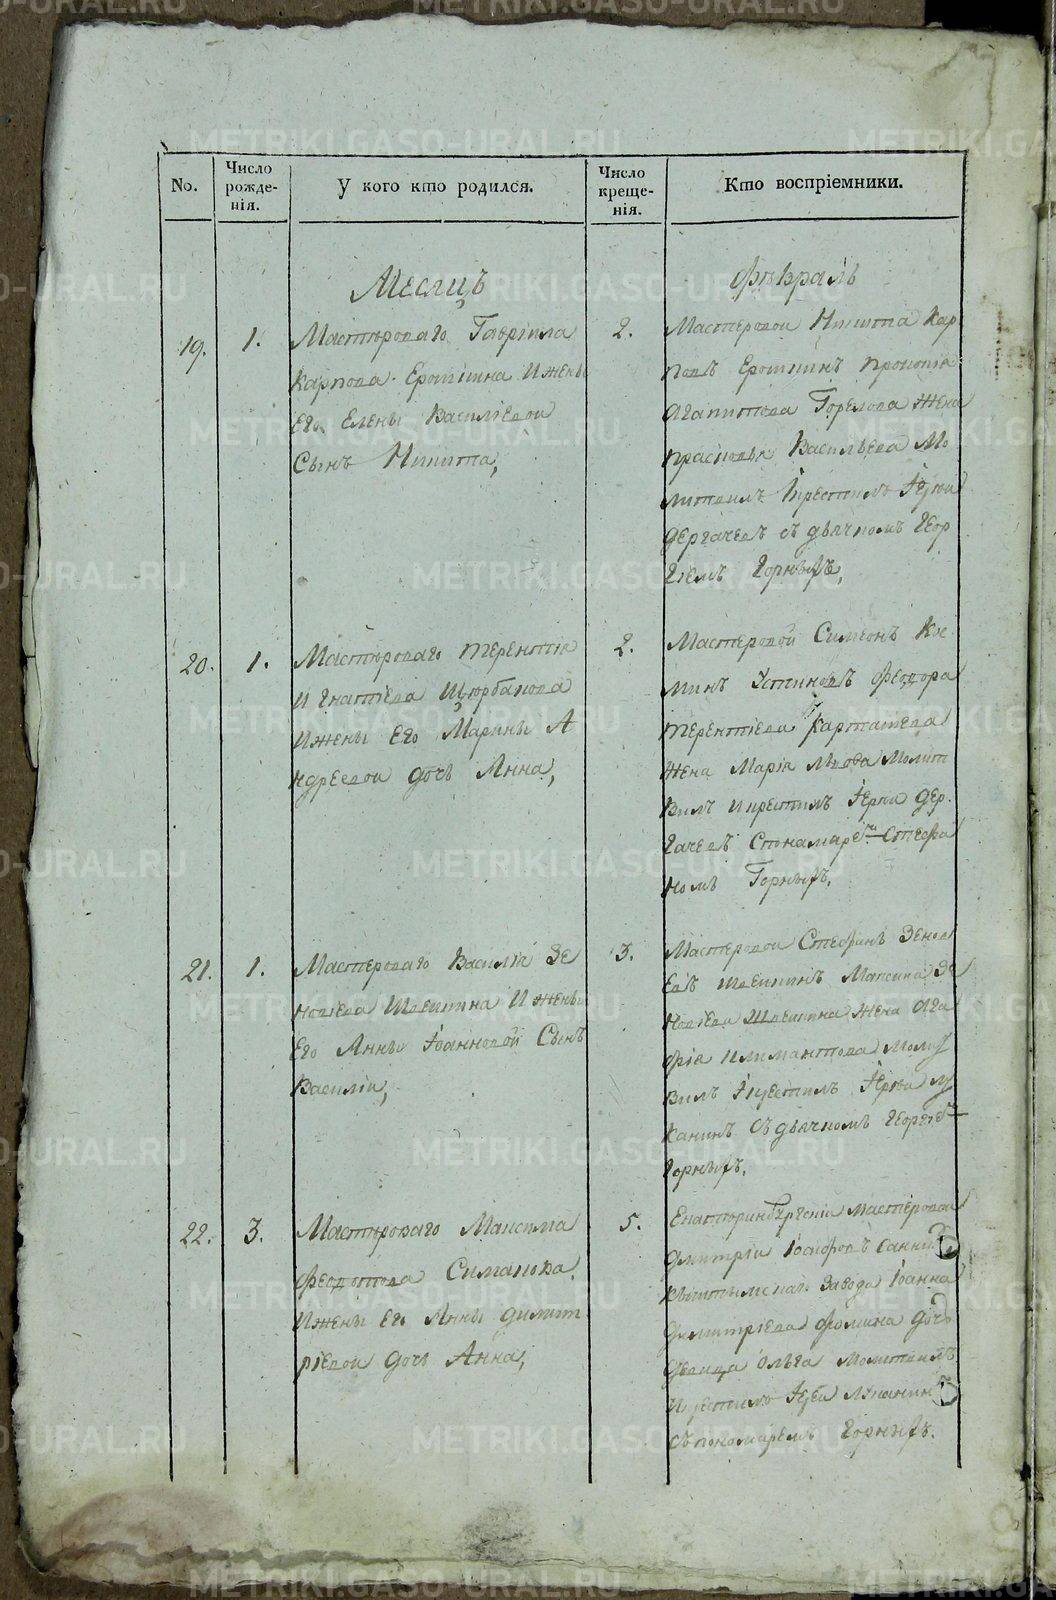 No.
Число рожде-нія.
У кого кто родился.
Число креще-нія.
Кто воспріемники.
Месяцъ
Февраль
19.
1.
Мастероваго Гавріила
Карпова Ерошкина И жены
Его Елены Василіевой
Сынъ Никита,
2.
Мастеровой Никита Кар
повъ Ерошкинъ прокопія
Агапитова Горелова Жена
прасковья Васильева Мо
литвилъ Крестилъ Іерей
Дергачевъ съ дьячкомъ Геор
гіемъ Горныхъ,
20.
1.
Мастероваго терентія
Игнатіева Щюрбакова
Ижены Его Марины А
ндреевой дочь Анна,
2.
Мастеровой Симеонъ
Устиновъ Феодора
терентіева Карташева
Жена Марія Молит
вилъ икрестилъ Іерей Дер
гачевъ Спонамаремъ Стефа
номъ Горныхъ.
21.
1.
Мастероваго Василія Зе
новіева Швейкина И жены
Его Анны Іоанновой Сынъ
Василій,
3.
Мастеровой Стефанъ Зенов
евъ Швейкинъ Максима Зе
новіева Швейкина Жена Ага
фія молит
вилъ Крестилъ Іерей Лу
канинъ Съ дьячкомъ Георгіемъ
Горныхъ.
22.
3.
Мастероваго Максима
Федотова Симанова
Ижены Его Анны димит
ріевой дочь Анна,
5.
Екатеринбургскій мастеровой
Димитрій
Кыштымскаго завода Іоанна
Димитріева Фомина дочь
девица Ольга молитвилъ
Икрестилъ Іерей Луканинъ
Съ пономаремъ Горныхъ.
METRIKI.GASO-URAL.RU